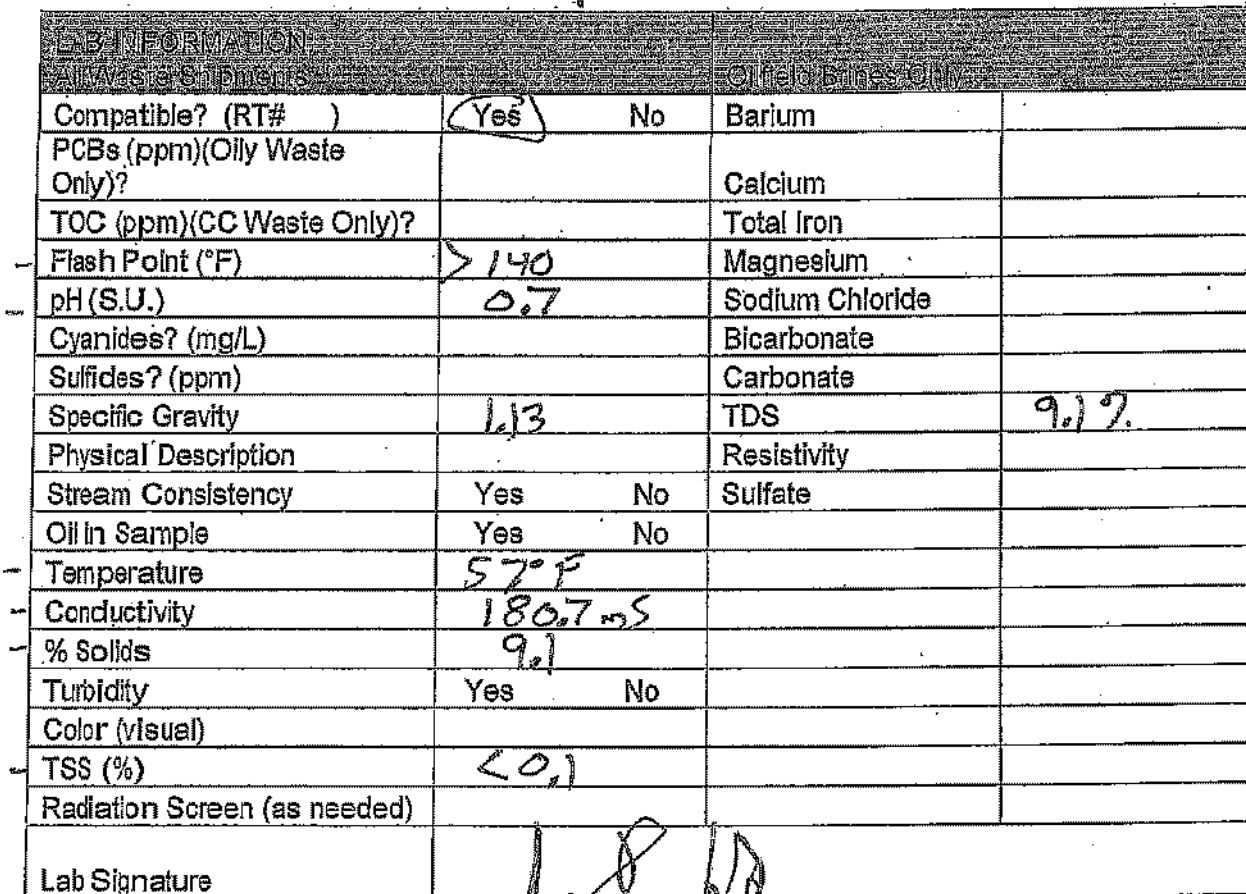 LAB INFORMATION
All Waste Shipments Oilfield Brines Only
Compatible? (RT# ) Yes No Barium
PCBs (ppm)(Oily Waste
Only)? Calcium
TOC (ppm)(CC Waste Only)? Total Iron
Flash Point (°F) >140 Magnesium
pH (S.U.) 0.7 Sodium Chloride
Cyanides? (mg/L) Bicarbonate
Sulfides? (ppm) Carbonate
Specific Gravity 1.13 TDS 9.1%
Physical Description Resistivity
Stream Consistency Yes No Sulfate
Oil in Sample Yes No
Temperature 57°F
Conductivity 180.7 mS
% Solids 9.1
Turbidity Yes No
Color (visual)
TSS (%) <0.1
Radiation Screen (as needed)
Lab Signature